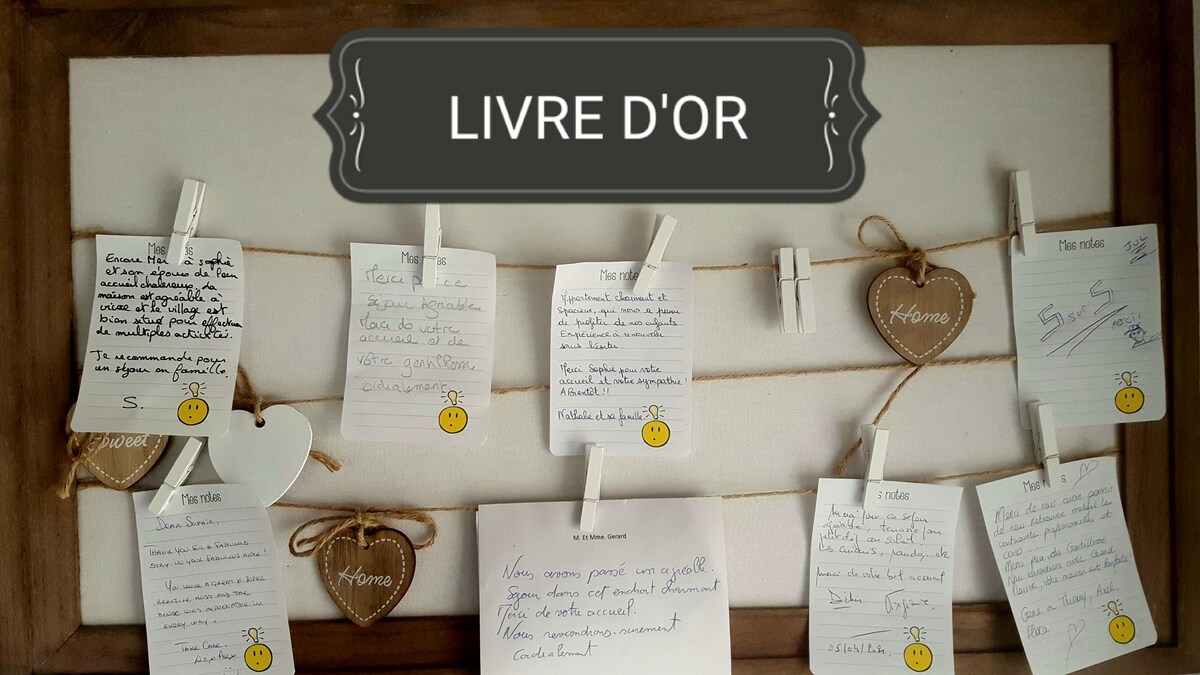 LIVRE D'OR
Mes notes
Encore Merci à Sophie
et son épous de leur
accueil chaleureux. La
maison est agréable à
vivre et le village est
bien situé pour effectuer
de multiples activités.
Je recommande pour
un séjour en famille.
S.
Mes notes
Merci pour ce
Séjour agréable
Merci de votre
accueil et de
votre gentillesse
cordialement
Mes notes
Appartement charmant et
spacieux, qui nous a permis
de profiter de nos enfants.
Expérience à renouveler
sans hésiter.
Merci Sophie pour votre
accueil et votre sympathie!
A Bientôt!!
Nathalie et sa famille.
Home
Mes notes
JUL
5 SUR 5
MERCI!
Sweet
Mes notes
DEAR SOPHIE,
THANK YOU FOR A FABULOUS
STAY IN YOUR FABULOUS HOME!
YOU WERE A GREAT
AND THE
HOUSE WAS IMPECCABLE IN
EVERY WAY.
TAKE CARE.
Home
M. Et Mme. Gerard
Nous avons passé un agréable
Séjour dans cet endroit charmant
Merci de votre accueil.
Nous reviendrons surement
Cordialement
Mes notes
Merci pour ce séjour
au soleil!
merci de votre bel accueil
Didier
05/04/2021
Mes notes
Merci de nous avoir permis
de nous retrouver malgré les
contraintes professionnelles et
covid
Merci pour la Gentillesse
Nous reviendrons avec Grand
Plaisir, votre maison est Parfaite
Thierry Axel